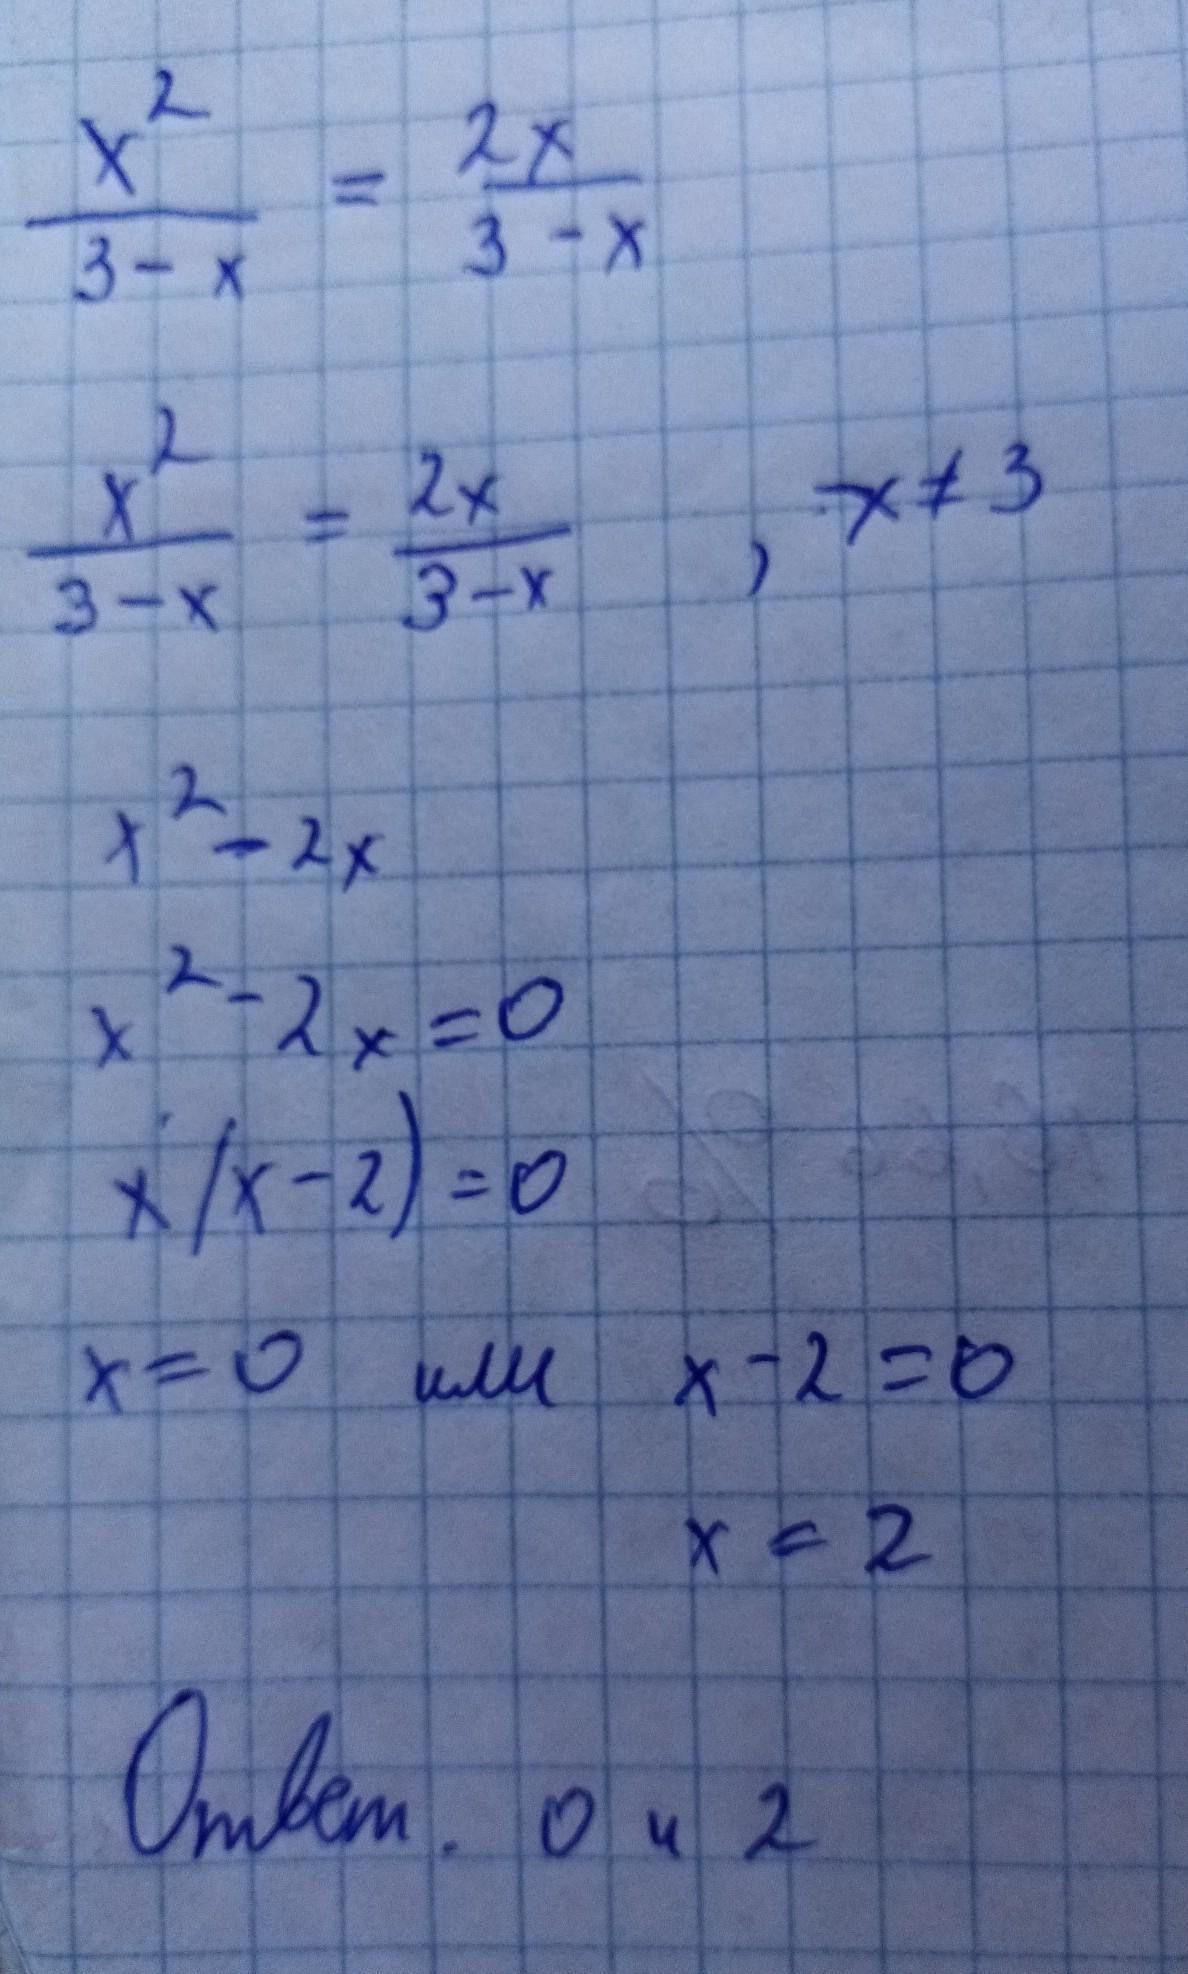 x²/(3 - x) = 2x/(3 - x)
x²/(3 - x) = 2x/(3 - x) , x ≠ 3
x² - 2x
x² - 2x = 0
x (x - 2) = 0
x = 0 или x - 2 = 0
x = 2
Ответ. 0 и 2